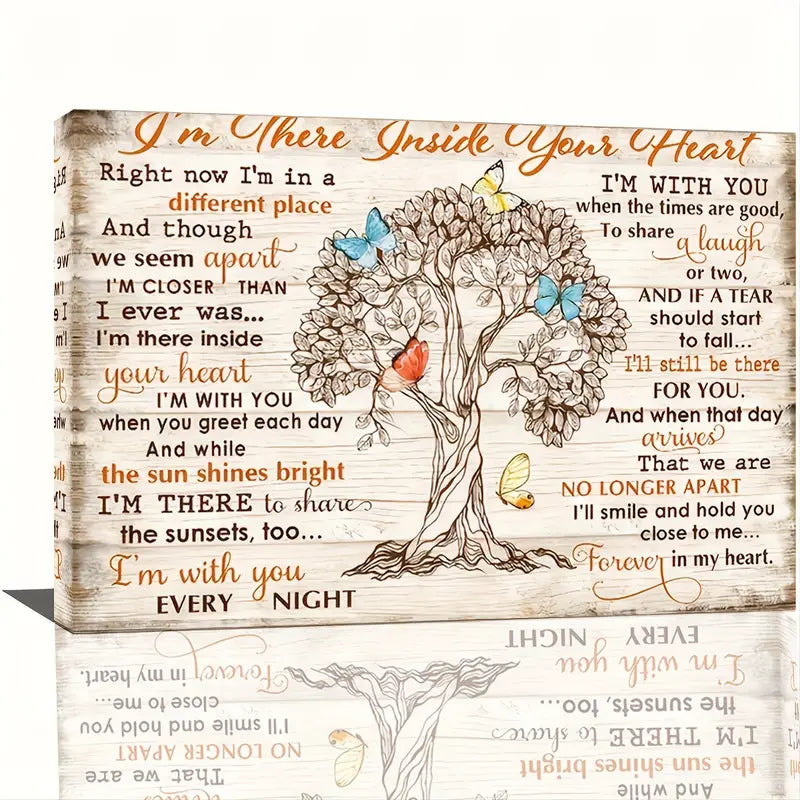 I'm There Inside Your Heart
Right now I'm in a
different place
And though
we seem apart
I'M CLOSER THAN
I ever was...
I'm there inside
your heart
I'M WITH YOU
when you greet each day
And while
the sun shines bright
I'M THERE to share
the sunsets, too...
I'm with you
EVERY NIGHT
I'M WITH YOU
when the times are good,
To share
a laugh
or two,
AND IF A TEAR
should start
to fall...
I'll still be there
FOR YOU.
And when that day
arrives
That we are
NO LONGER APART
I'll smile and hold you
close to me...
Forever in my heart.